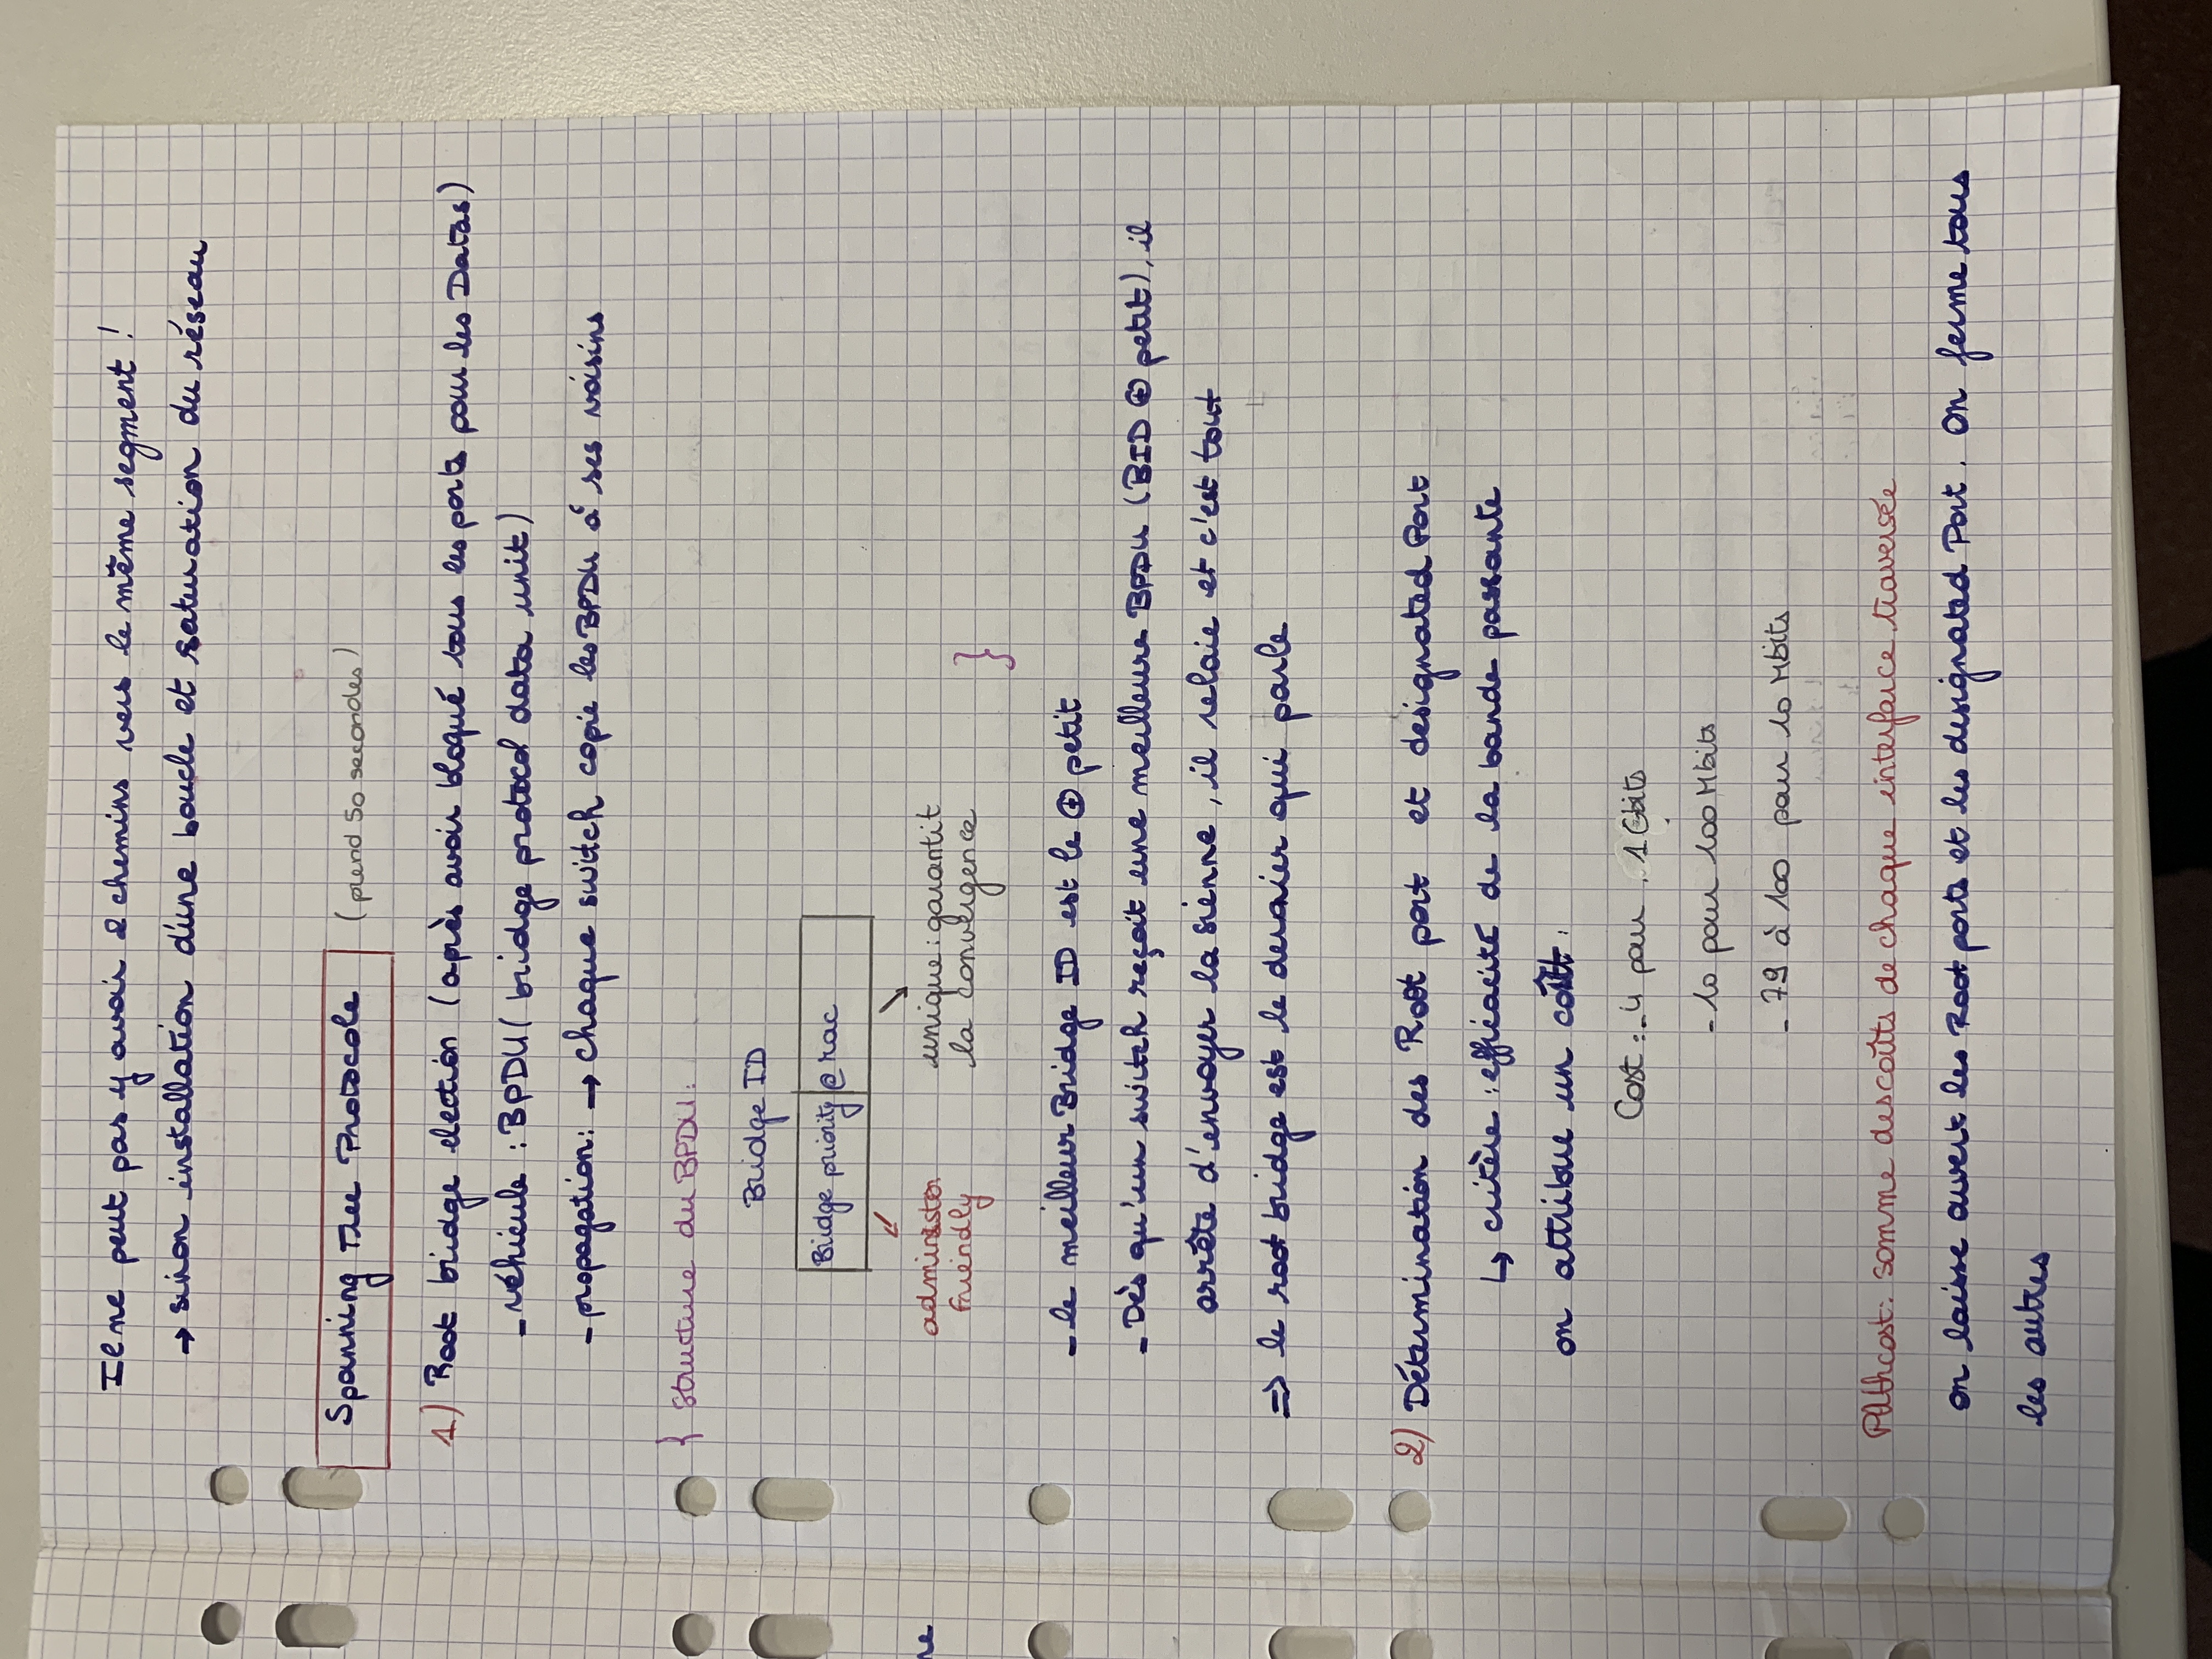 Il ne peut pas y avoir 2 chemins vers le même segment !
→ sinon installation d'une boucle et saturation du réseau
Spanning Tree Protocole (prend 50 secondes)
1) Root bridge election (après avoir bloqué tous les ports pour les Datas)
- véhicule : BPDU ( bridge protocol data unit)
- propagation : → chaque switch copie les BPDU à ses voisins
{ Structure du BPDU :
Bridge ID
Bridge priority @ mac
administor unique : garantit
friendly la convergence }
- le meilleur Bridge ID est le ⊕ petit
- Dès qu'un switch reçoit une meilleure BPDU (BID ⊕ petit), il
arrête d'envoyer la sienne, il relaie et c'est tout
=> le root bridge est le dernier qui parle
2) Détermination des Root port et designated Port
↳ critère : efficacité de la bande passante
on attribue un coût :
Cost : - 4 pour 1 Gbits
- 10 pour 100 Mbits
- 79 à 100 pour 10 Mbits
Pathcost : somme des coûts de chaque interface traversée
on laisse ouvert les Root ports et les designated Port. On ferme tous
les autres